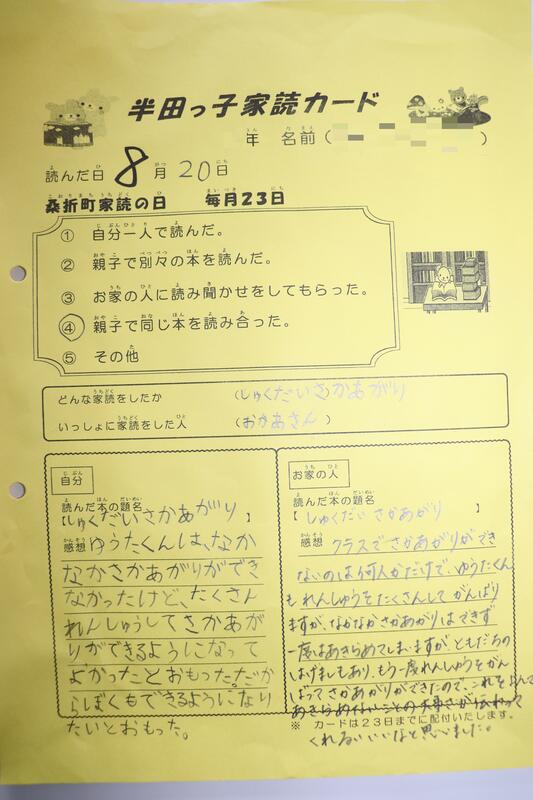 半田っ子家読カード
年 名前( )
読んだ日 8月 20日
桑折町家読の日 毎月23日
① 自分一人で読んだ。
② 親子で別々の本を読んだ。
③ お家の人に読み聞かせをしてもらった。
④ 親子で同じ本を読み合った。
⑤ その他
どんな家読をしたか (しゅくだいさかあがり
いっしょに家読をした人 (おかあさん)
自分
読んだ本の題名
【しゅくだいさかあがり 】
感想 ゆうたくんは、なか
なかさかあがりができ
なかったけど、たくさん
れんしゅうしてさかあが
りができるようになって
よかったとおもった。だか
らぼくもできるようになり
たいとおもった。
お家の人
読んだ本の題名
【しゅくだいさかあがり 】
感想 クラスでさかあがりができ
ないのは何人かだけで、ゆうたくん
もれんしゅうをたくさんして がんばり
ますが、なかなかさかあがりはできず
一度はあきらめてしまいますが、ともだちの
はげましもあり、もう一度れんしゅうをがん
ばってさかあがりができたので、これをよんで
あきらめないことの大事さが伝わって
※ カードは23日までに配付いたします。
くれるといいなと思いました。